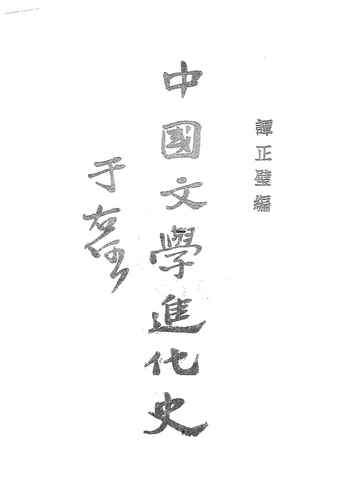 譚正璧編
中國文學進化史
于右任